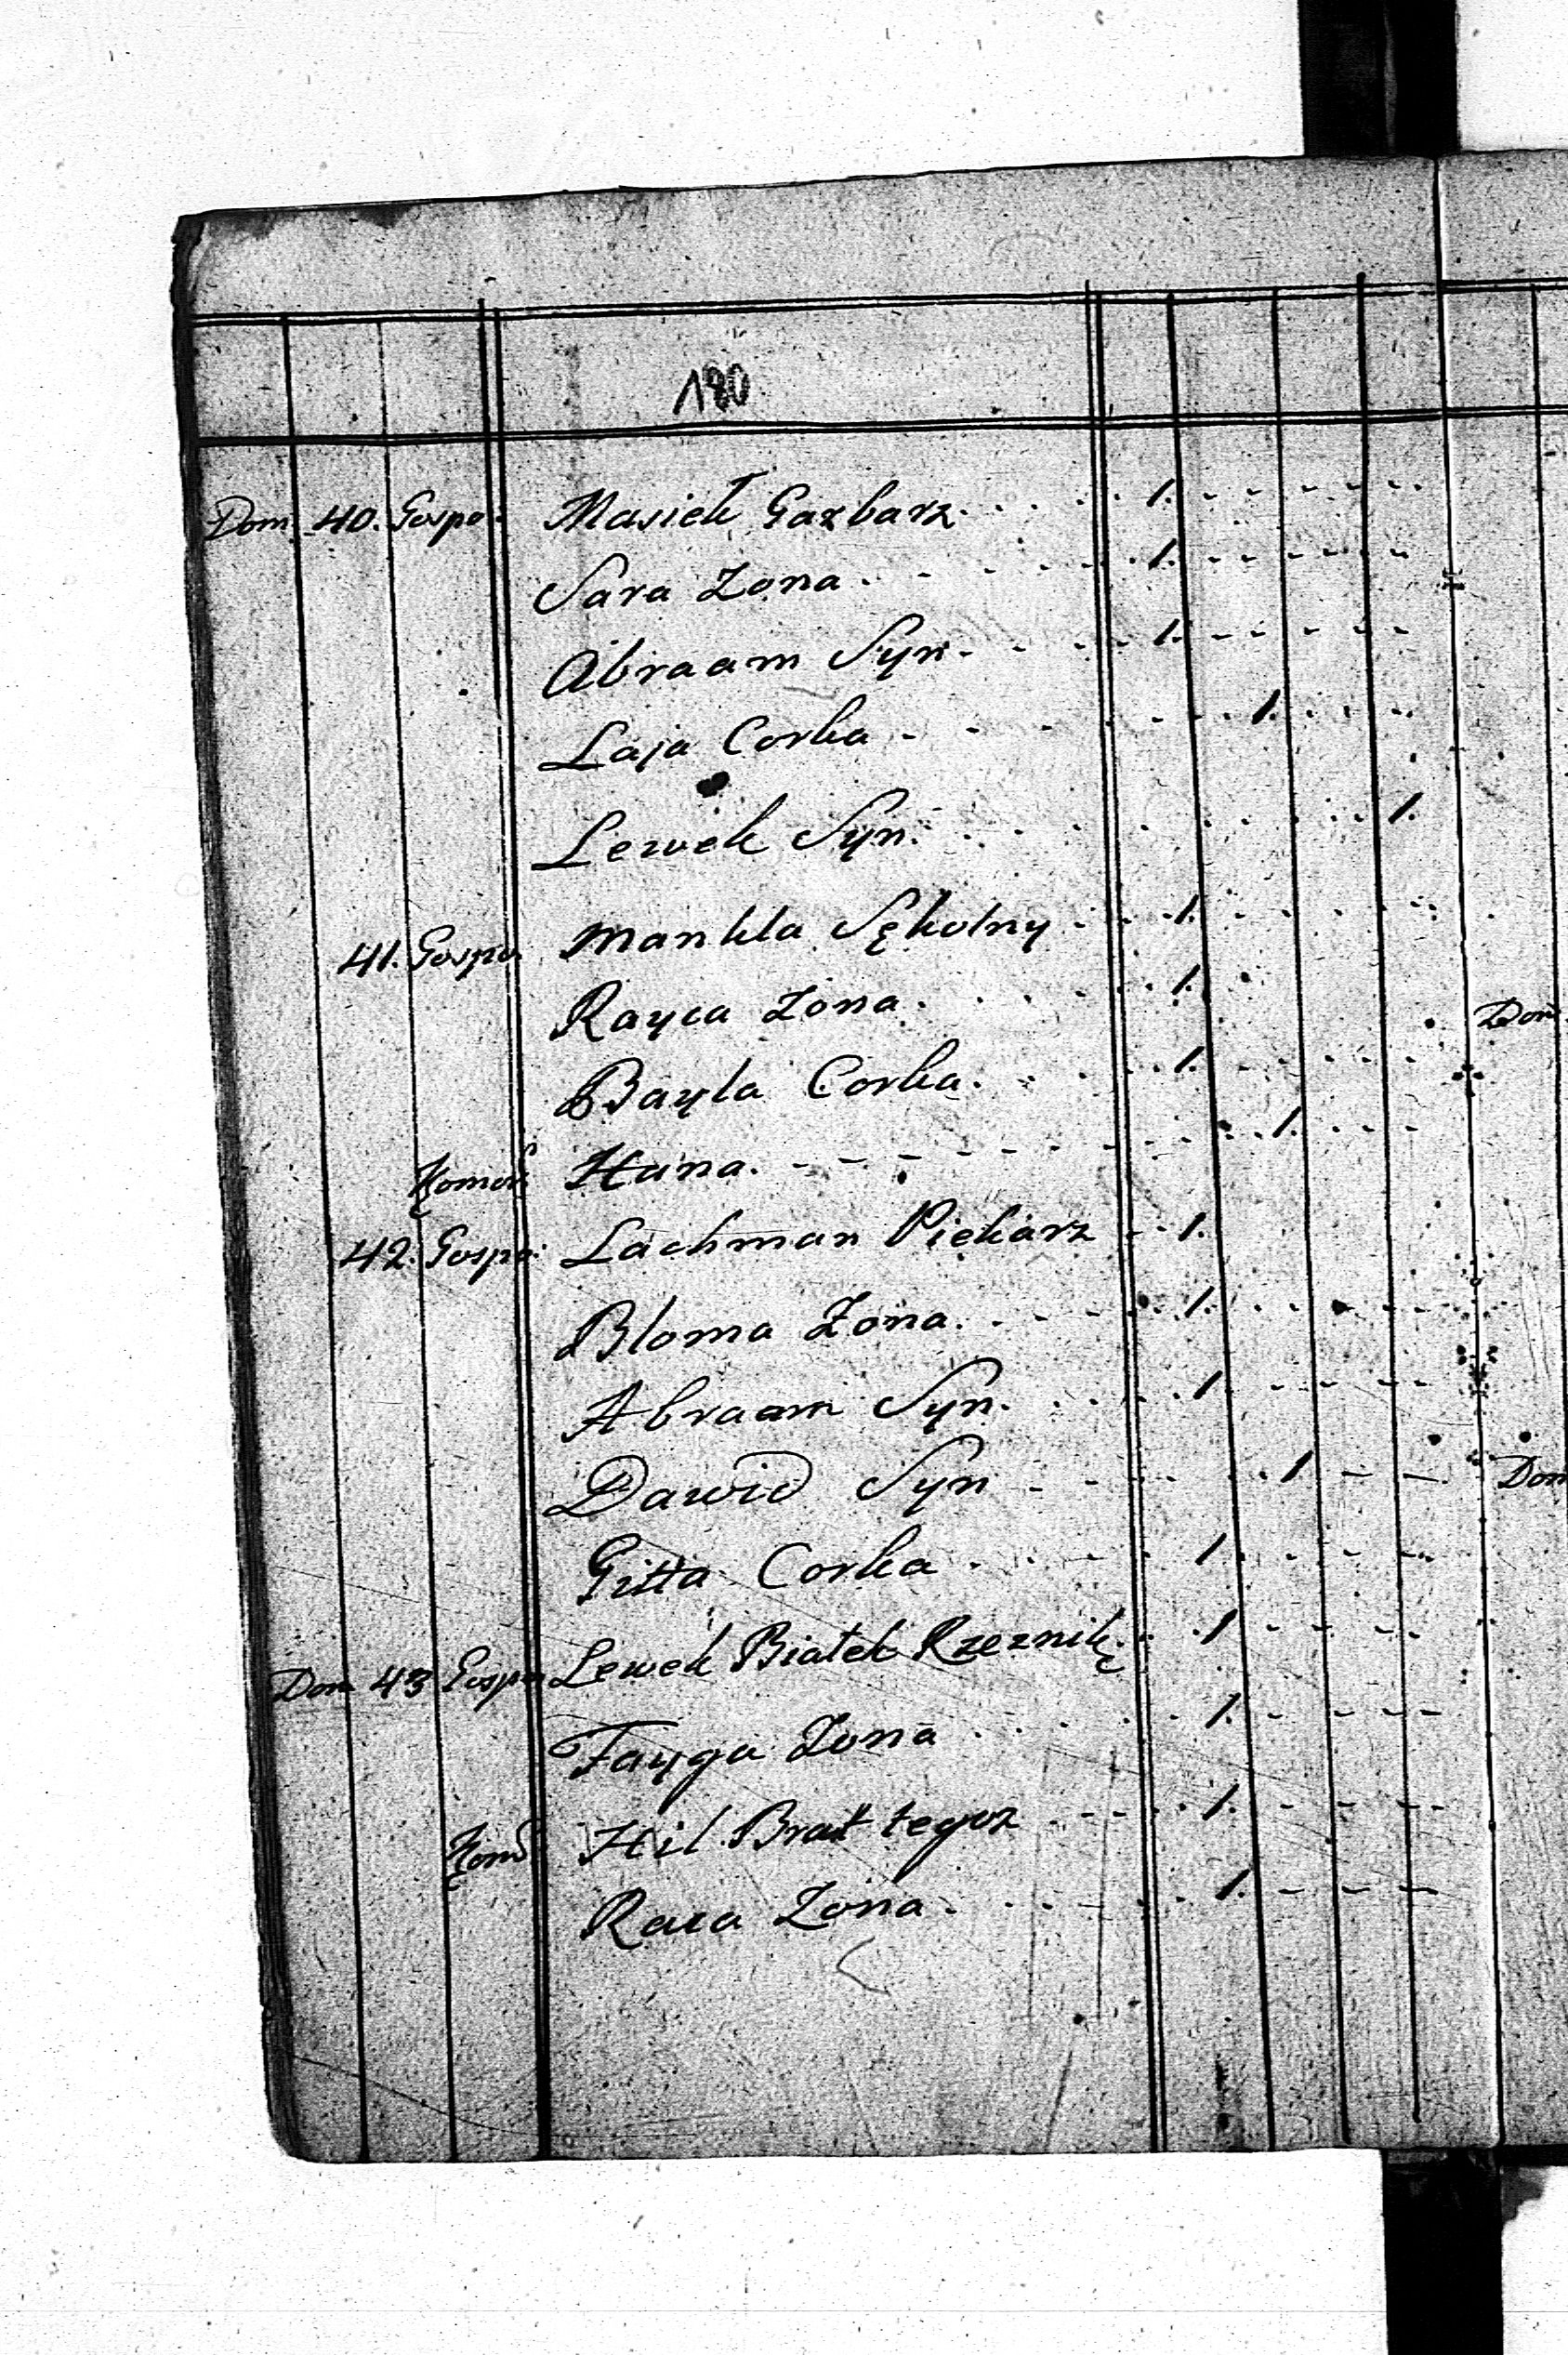 180
Dom. 40. Gospo. Masiek Garbarz 1.
Sara Zona 1.
Abraam Syn 1.
Laja Corka 1.
Lewek Syn. 1.
41. Gospo. Mankla Sękolny 1.
Rayca Zona. 1.
Bayla Corka. 1.
Komor Hana. 1.
42. Gospo: Lachman Piekarz 1.
Dom
Bloma Zona. 1.
Abraam Syn. 1
Dawid Syn 1
Dom
Gitta Corka 1.
Dom 43 Gospo Lewek Białek Rzeznik. 1
Fayga Zona 1.
Kom Hil Brat tegoz 1.
Raca Zona. 1.